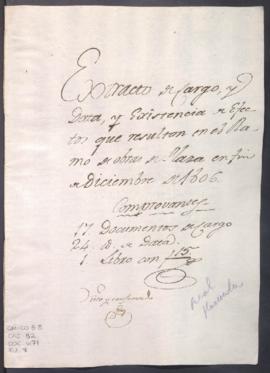 Extracto de Cargo, y
Data, y Existencia de Efec-
tos que resultan en el Ra-
mo de obras de Plaza en fin
de Diciembre de 1806.
Comprovantes
17. Documentos de Cargo
24. id. de Data
1 Libro con f. 15
Real
Hacienda